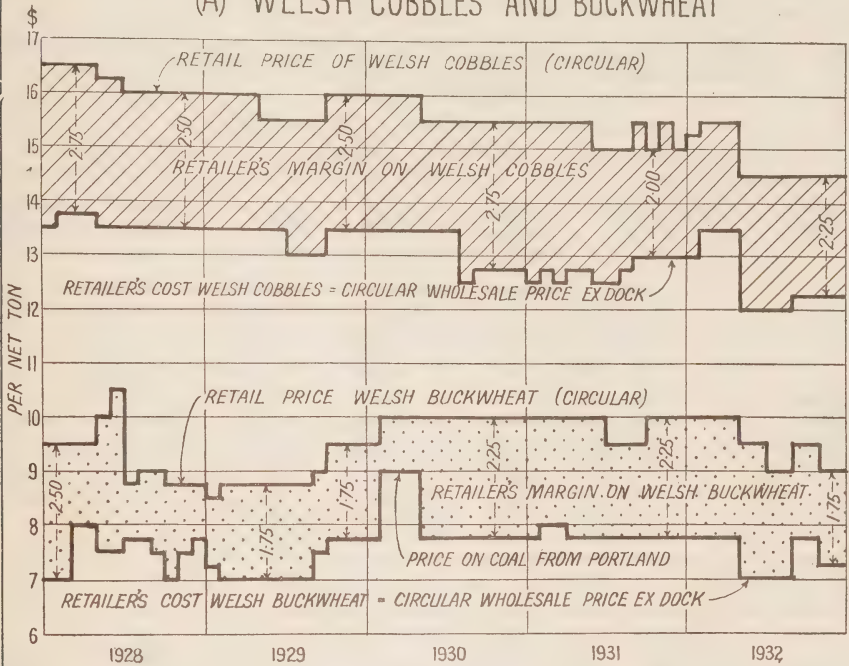 (A) WELSH COBBLES AND BUCKWHEAT
$
PER NET TON
17
16
15
14
13
12
11
10
9
8
7
6
RETAIL PRICE OF WELSH COBBLES (CIRCULAR)
2.75
2.50
2.50
2.75
2.00
2.25
RETAILER'S MARGIN ON WELSH COBBLES
RETAILER'S COST WELSH COBBLES = CIRCULAR WHOLESALE PRICE EX DOCK
RETAIL PRICE WELSH BUCKWHEAT (CIRCULAR)
2.50
1.75
1.75
2.25
2.25
1.75
RETAILERS' MARGIN ON WELSH BUCKWHEAT.
PRICE ON COAL FROM PORTLAND
RETAILER'S COST WELSH BUCKWHEAT = CIRCULAR WHOLESALE PRICE EX DOCK
1928 1929 1930 1931 1932